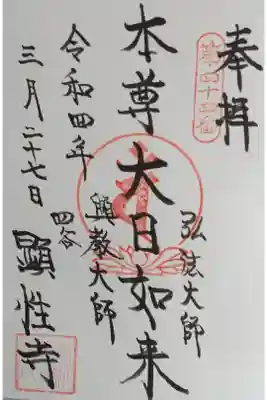 奉拝
第四十三番
弘法大師
本尊大日如来
興教大師
令和四年
四谷
三月二十七日
顕性寺